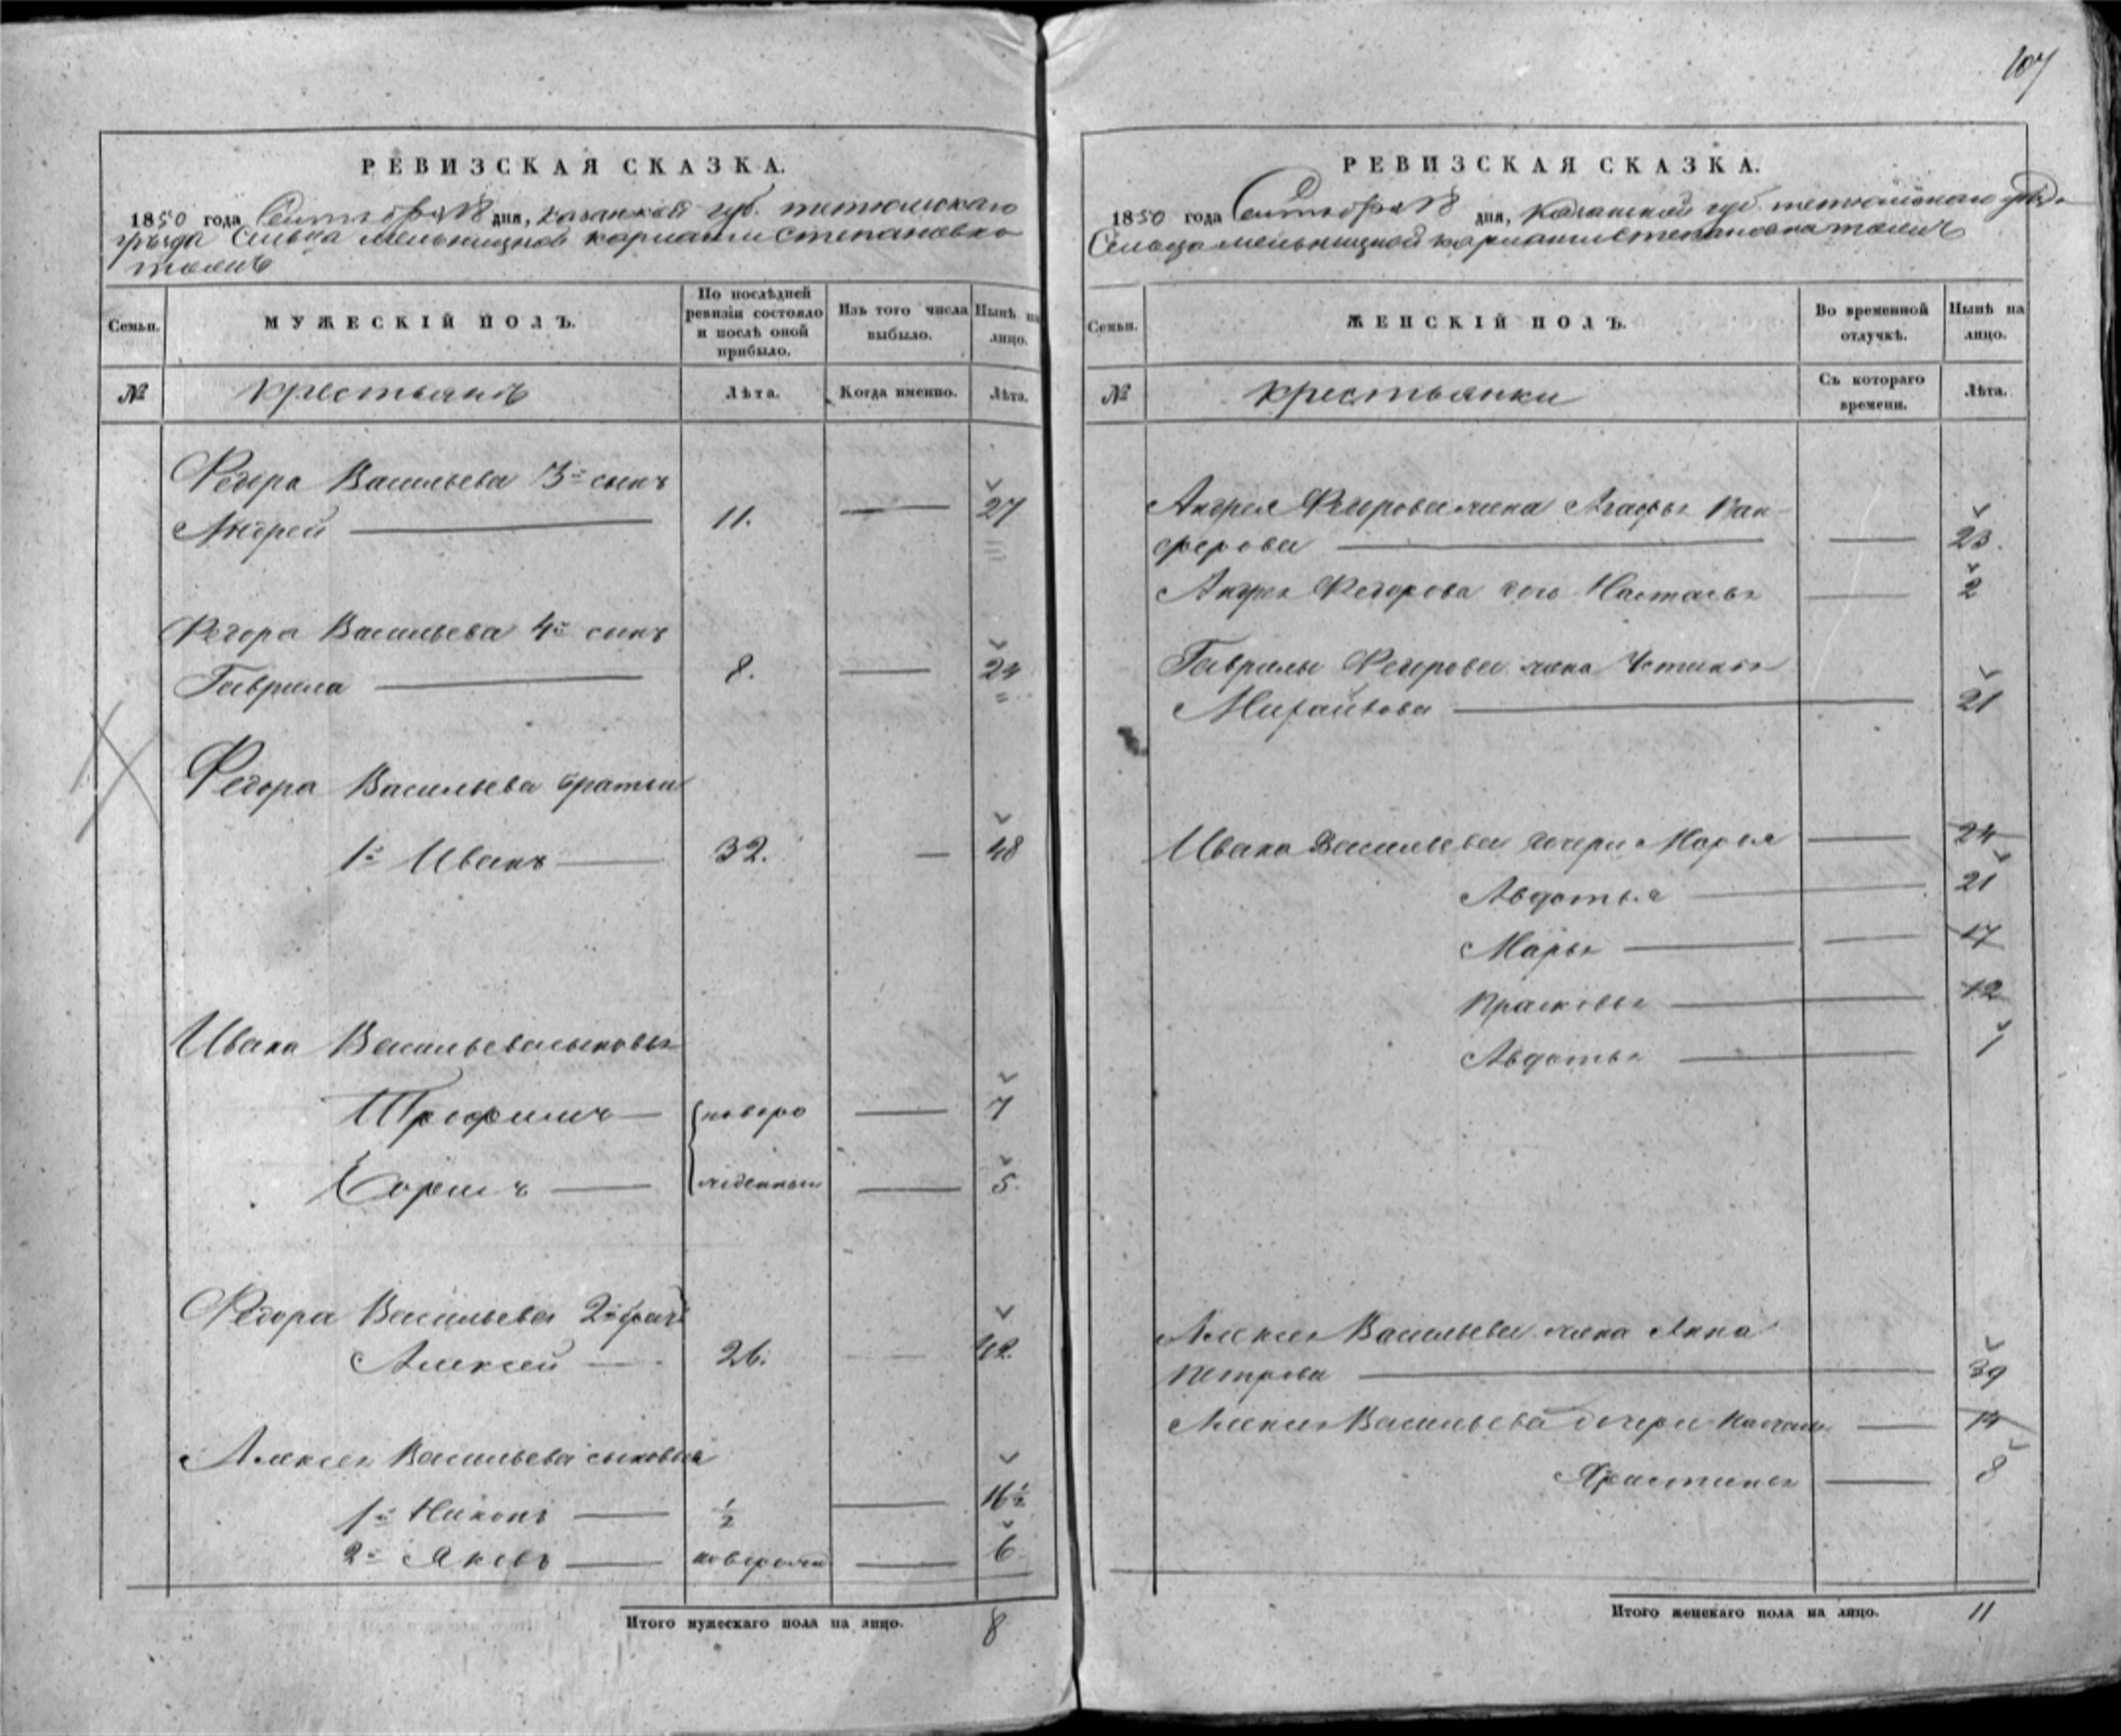 107
РЕВИЗСКАЯ СКАЗКА.
1850 года Сентября 18 дня, казанской губ. тетюшскаго
уѣзда Сельца мельничной кармалы Степановка
тожъ
Семьи.
МУЖЕСКІЙ ПОЛЪ.
По послѣдней
ревизіи состояло
и послѣ оной
прибыло.
Изъ того числа
выбыло.
Нынѣ на
лицо.
№
крестьянъ
Лѣта.
Когда именно.
Лѣта.
Федора Васильева 3й сынъ
Андрей 11. 27
Федора Васильева 4й сынъ
Гаврила 8. 24
Федора Васильева братья
1й Иванъ 32. 48
Ивана Васильева сыновья
Трофимъ новоро 7
Ефремъ жденныи 5
Федора Васильева 2й братъ
Алексей 26. 42
Алексея Васильева сыновья
1й Никонъ 1/2 16 1/2
2й Яковъ новорожд 6
Итого мужескаго пола на лицо. 8
РЕВИЗСКАЯ СКАЗКА.
1850 года Сентября 18 дня, Казанской губ. тетюшскаго уѣзда
Сельца мельничной кармалы Степановка тожъ
Семьи.
ЖЕНСКІЙ ПОЛЪ.
Во временной
отлучкѣ.
Нынѣ на
лицо.
№
крестьянки
Съ котораго
времени.
Лѣта.
Андрея Федорова жена Агафья Пан
ферова 23.
Андрея Федорова дочь Настасья 2
Гаврилы Федорова жена Устинья
Михайлова 21
Ивана Васильева дочери Марья 24
Авдотья 21
Марья 17
Прасковья 12
Авдотья 1
Алексея Васильева жена Анна
Петрова 39
Алексея Васильева дочери Настасья 14
Христинья 8
Итого женскаго пола на лицо. 11